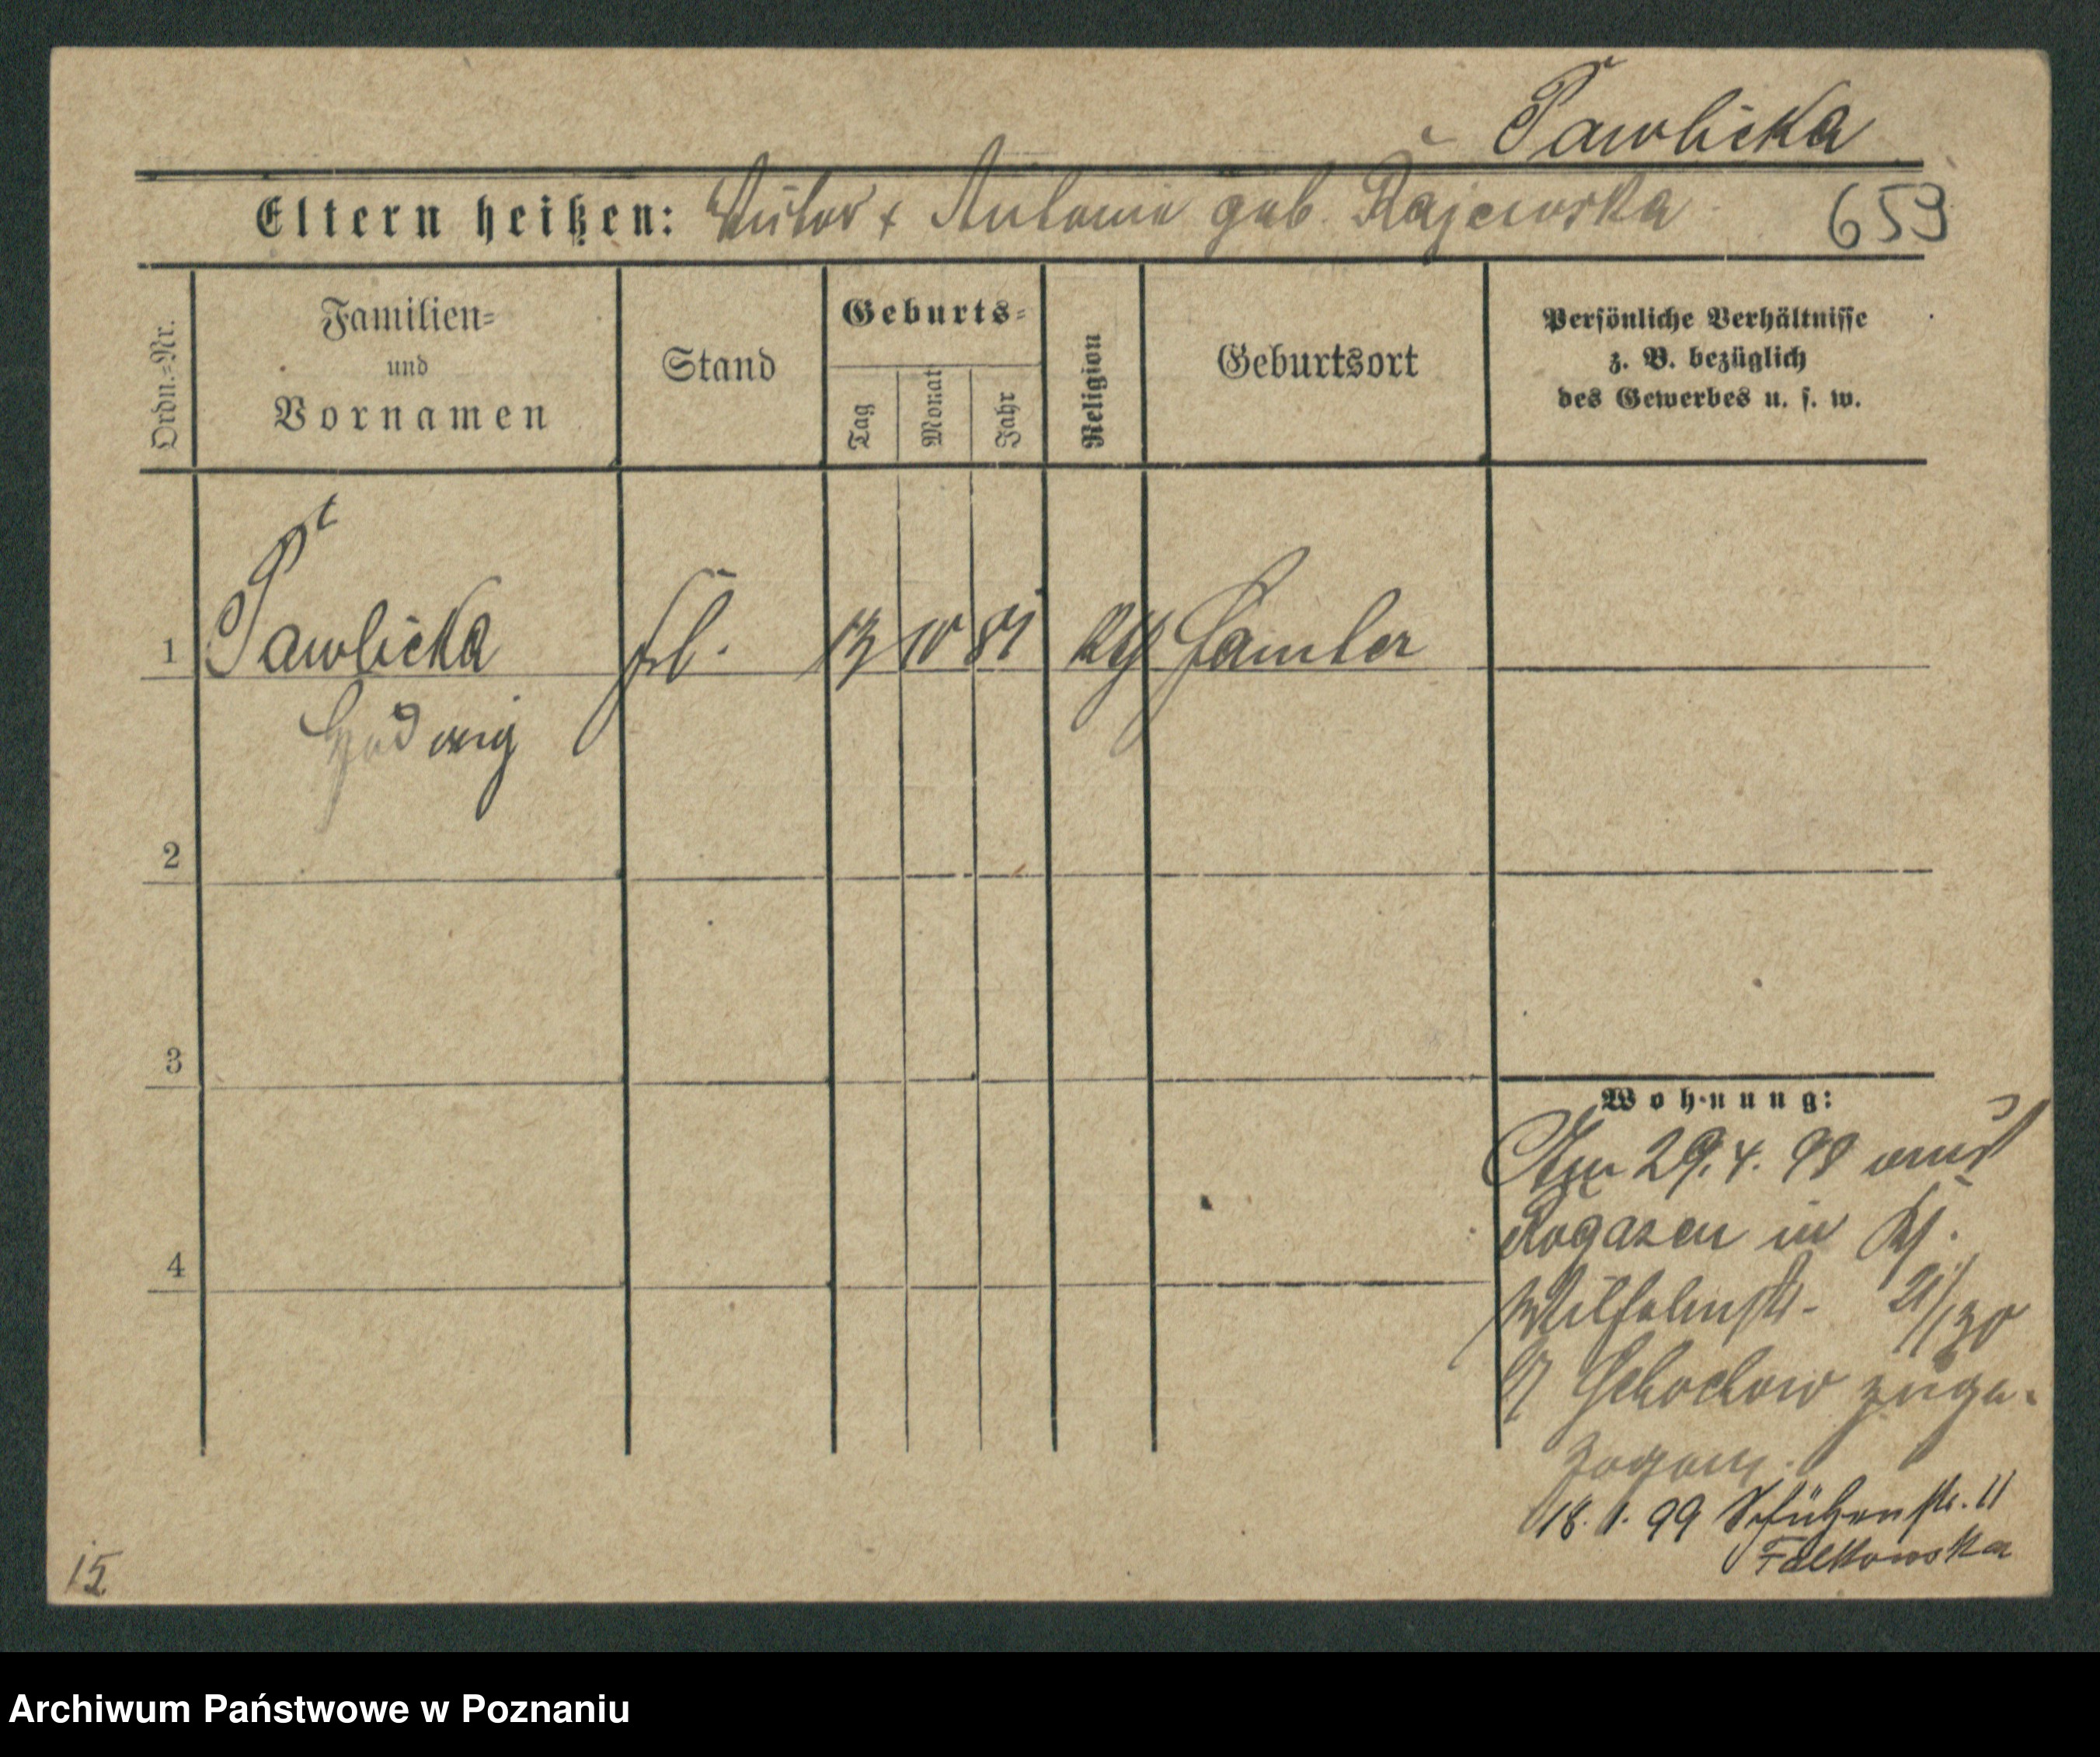 Pawlicka
Eltern heißen: + Antonie geb. Rajewska 659
Ordn.-Nr.
Familien-
und
Vornamen
Stand
Geburts-
Tag
Monat
Jahr
Religion
Geburtsort
Persönliche Verhältnisse
z. B. bezüglich
des Gewerbes u. s. w.
1 Pawlicka 10 81 Samter
Hedwig
2
3
4
Wohnung:
29.4. 98
Rogasen in
Wilhelmstr. 21/
zuge-
zogen.
18. 1. 99 Schützenstr. 11
Falkowska
15.
Archiwum Państwowe w Poznaniu